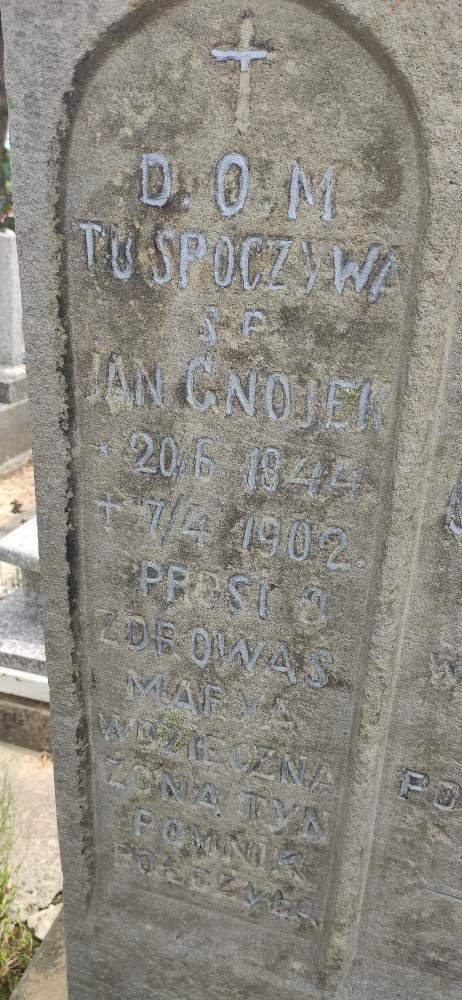 D. O. M
TU SPOCZYWA
Ś P
JAN GNOJEK
* 20/6 1844
+ 7/4 1902.
PROSI 3
ZDROWAS
MARYA
WDZIECZNA
ZONA TYN
POMNIK
PO